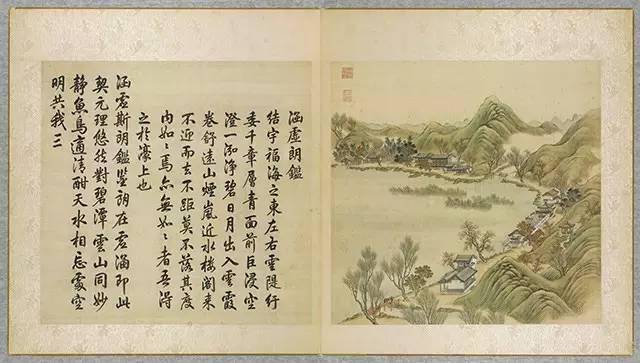 涵虛朗鑑
結宇福海之東左右雲隄紆
委千章層青面前巨浸空
澄一泓淨碧日月出入雲霞
卷舒遠山煙嵐近水樓閣來
不迎而去不距莫不落其度
內如〻焉亦無如〻者吾得
之於濠上也
涵虛斯朗鑑鑒朗在虛涵即此
契元理悠然對碧潭雲山同妙
靜魚鳥適清酣天水相忘處空
明共我三